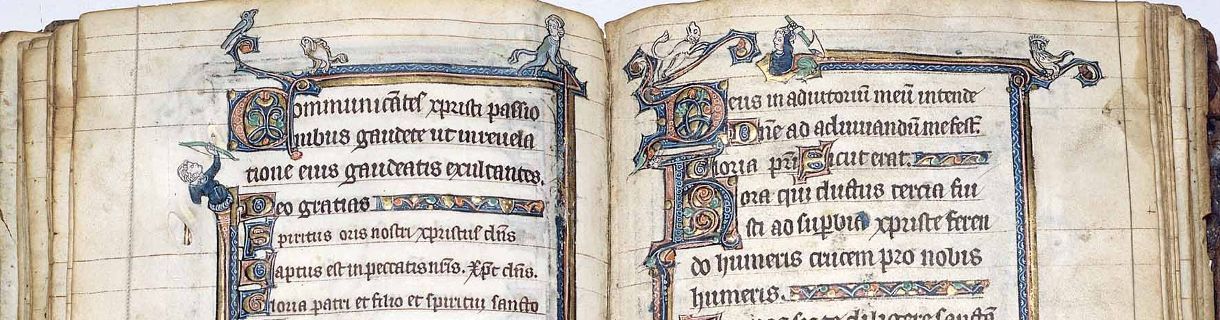 Communicātes xpristi passio
nibus gaudete ut in revela
tione eius gaudeatis exultantes.
Deo gratias
Spiritus oris nostri xpristus dn̄s
Captus est in peccatis nr̄is. Xp̄c dn̄s.
Gloria patri et filio et spiritui sancto
Deus in adiutoriū meū intende
Dn̄e ad adiuvandū me fest.
Gloria pr̄i Sicut erat.
Hora qui ductus tercia fui
sti ad suppliciā xpriste feren
do humeris crucem pro nobis
humeris.
sic te diligere sanctā